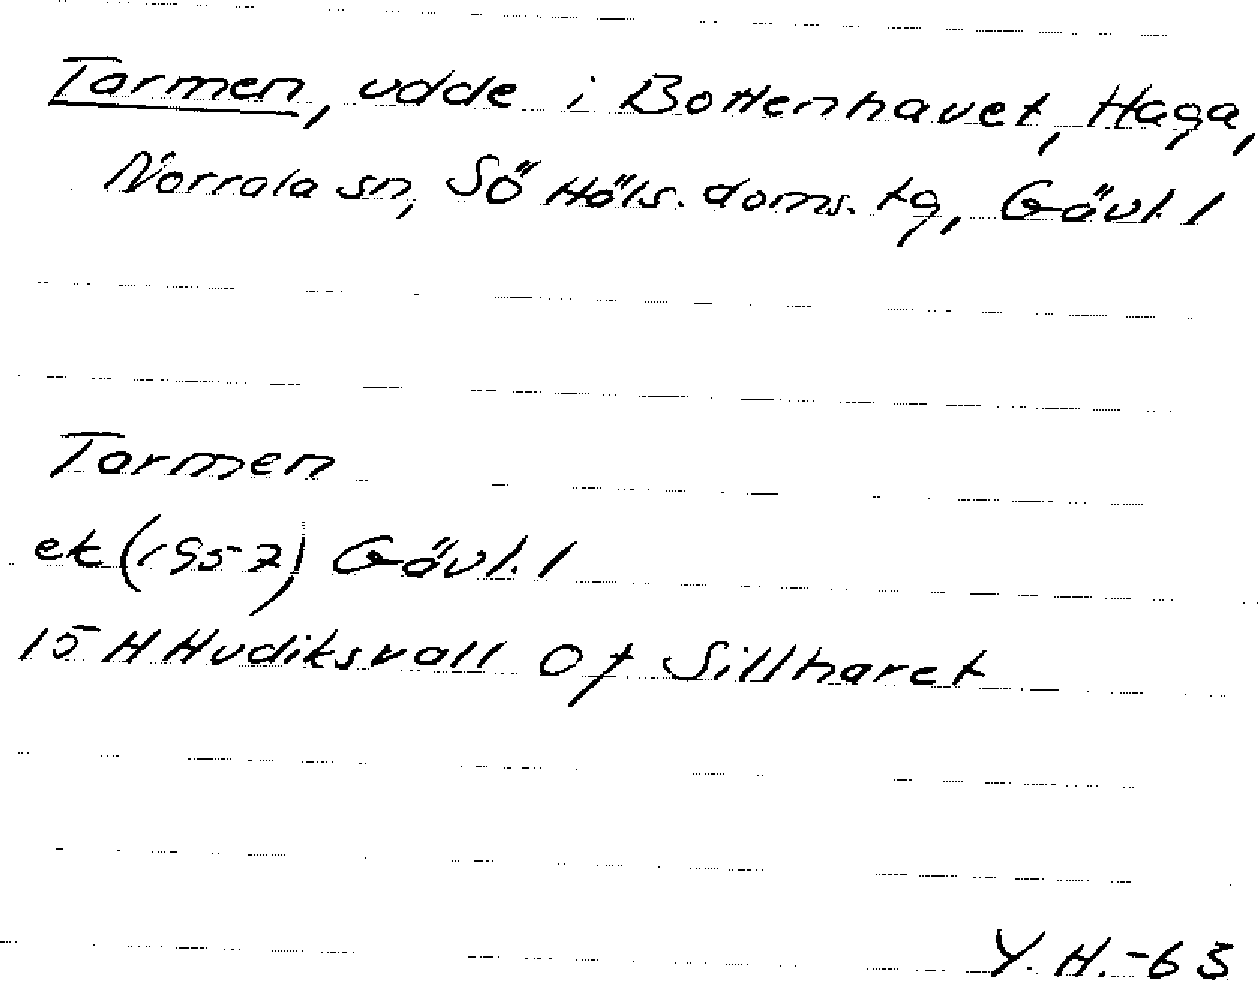 Tarmen, udde i Bottenhavet, Haga,
Norrala sn, Sö Häls. doms. tg, Gävl. l
Tarmen
ek (1957) Gävl. l
15 H Hudiksvall Of Sillharet
Y. H. -63